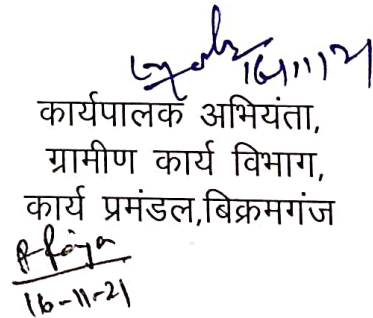 16/11/21
कार्यपालक अभियंता,
ग्रामीण कार्य विभाग,
कार्य प्रमंडल,बिक्रमगंज
16-11-21